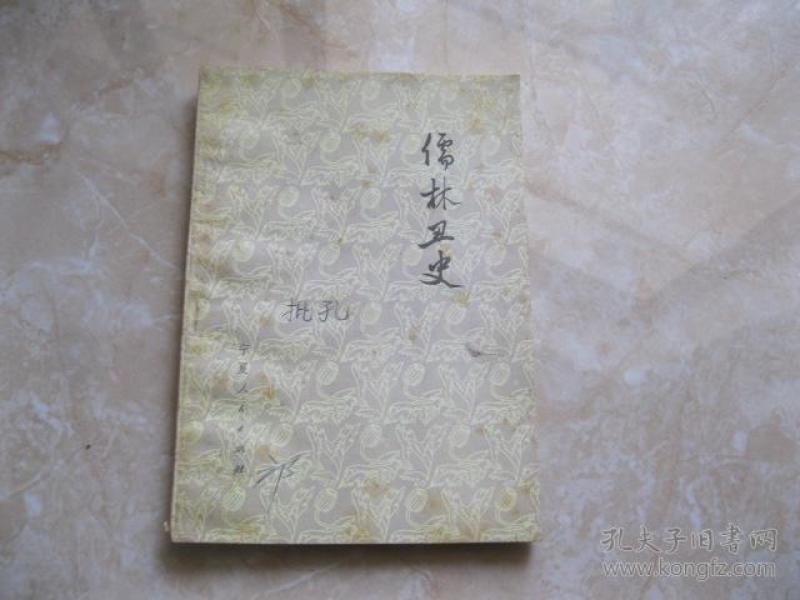 儒林丑史
批孔
宁夏人民出版社
祁
孔夫子旧书网
www.kongfz.com